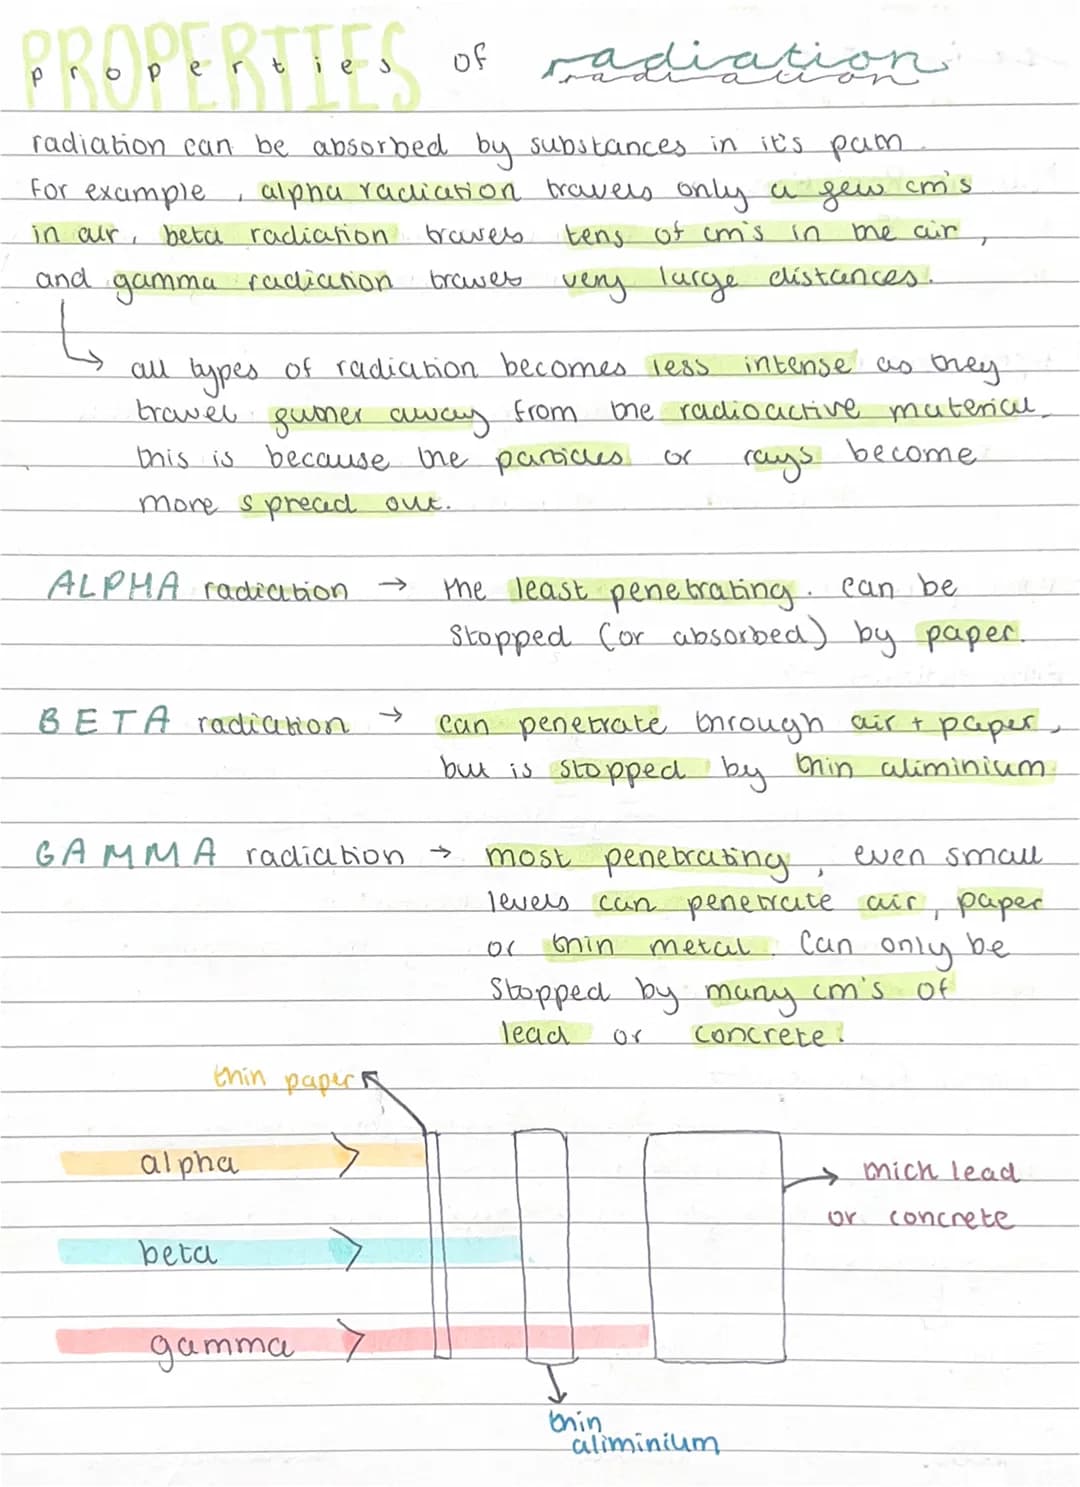 PROPERTIES
properties of radiation
radiation
radiation can be absorbed by substances in it's path.
For example, alpha radiation travels only a few cm's
in air, beta radiation travels tens of cm's in the air,
and gamma radiation travels very large distances.
all types of radiation becomes less intense as they
travel further away from the radioactive material.
this is because the particles or rays become
more spread out.
ALPHA radiation → the least penetrating. can be
stopped (or absorbed) by paper.
BETA radiation → can penetrate through air + paper,
but is stopped by thin aliminium
GAMMA radiation → most penetrating, even small
levels can penetrate air, paper
or thin metal. Can only be
stopped by many cm's of
lead or concrete.
thin paper
alpha
thick lead
or concrete
beta
gamma
thin
aliminium